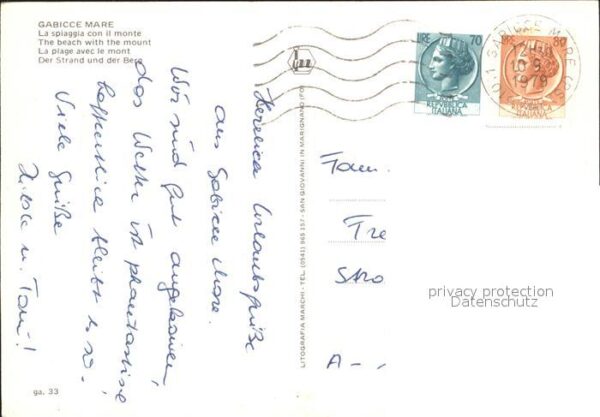 GABICCE MARE
La spiaggia con il monte
The beach with the mount
La plage avec le mont
Der Strand und der Berg
Herzliche Urlaubsgrüße
aus Gabicce Mare.
Wir sind gut angekommen,
das Wetter ist phantastisch
hoffentlich bleibt es so.
Viele Grüße
u. Fam!
ga. 33
LITOGRAFIA MARCHI - TEL. (0541) 965 157 - SAN GIOVANNI IN MARIGNANO (FO)
LIRE 70
REPVBBLICA
ITALIANA
80
REPVBBLICA
ITALIANA
GABICCE MARE
10.9.
1979
Fam.
Tre
Stro
A-
privacy protection
Datenschutz